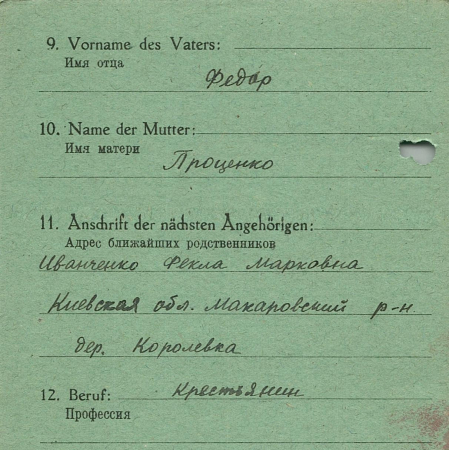 9. Vorname des Vaters:
Имя отца
Федор
10. Name der Mutter:
Имя матери
Проценко
11. Anschrift der nächsten Angehörigen:
Адрес ближайших родственников
Иванченко Фекла Марковна
Киевская обл. Макаровский р-н.
дер. Королевка
12. Beruf: Крестьянин
Профессия